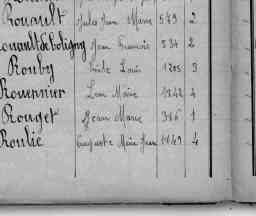 Rouault Jules Jean Marie 549 2
Rouault de Coligny Jean François 534 2
Rouby Louis 1205 3
Rouernier Léon Marie 1242 4
Rouget Jean Marie 316 1
Roulic Auguste Marie Jean 1149 4